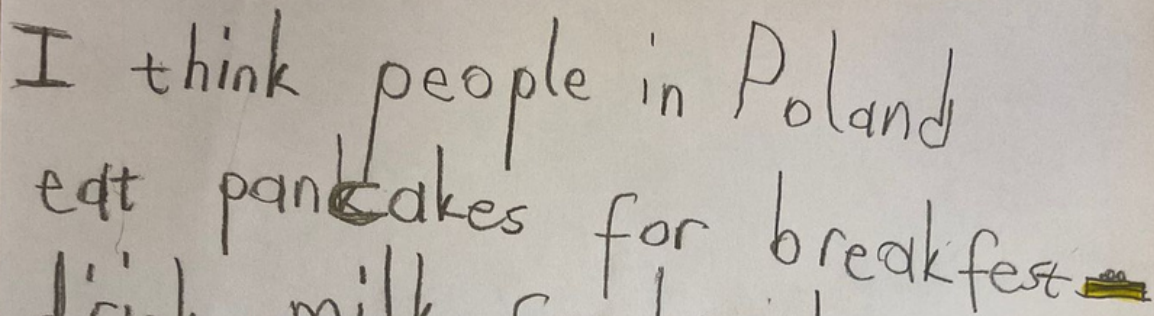 I think people in Poland
eat pancakes for breakfest
milk